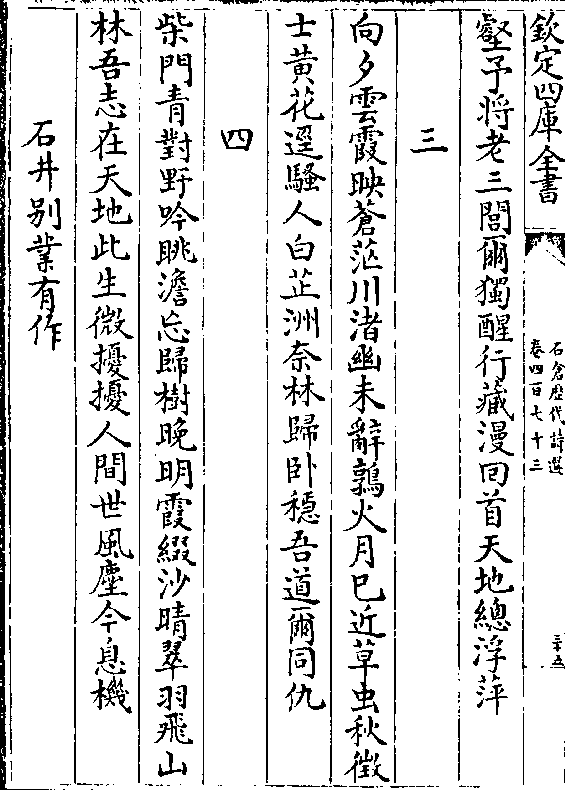 欽定四庫全書
石倉歷代詩選
卷四百七十三
三十五
壑予將老三閭爾獨醒行藏漫回首天地總浮萍
三
向夕雲霞映蒼茫川渚幽未辭鶉火月已近草虫秋徵
士黄花逕騷人白芷洲奈林歸卧穏吾道爾同仇
四
柴門青對野吟眺澹忘歸樹晚明霞綴沙晴翠羽飛山
林吾志在天地此生微擾擾人間世風塵今息機
石井别業有作